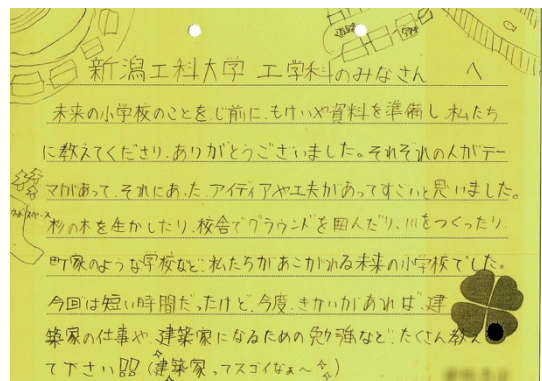 新潟工科大学 工学科のみなさん へ
未来の小学校のことを、じ前に、もけいや資料を準備し、私たち
に教えてくださり、ありがとうございました。それぞれの人がテー
マがあって、それにあった、アイディアや工夫があってすごいと思いました。
杉の木を生かしたり、校舎でグラウンドを囲んだり、川をつくったり、
町家のような学校など、私たちがあこがれる未来の小学校でした。
今回は短い時間だったけど、今度、きかいがあれば、建
築家の仕事や、建築家になるための勉強など、たくさん教え
て下さい!!(建築家ってスゴイなぁ〜)